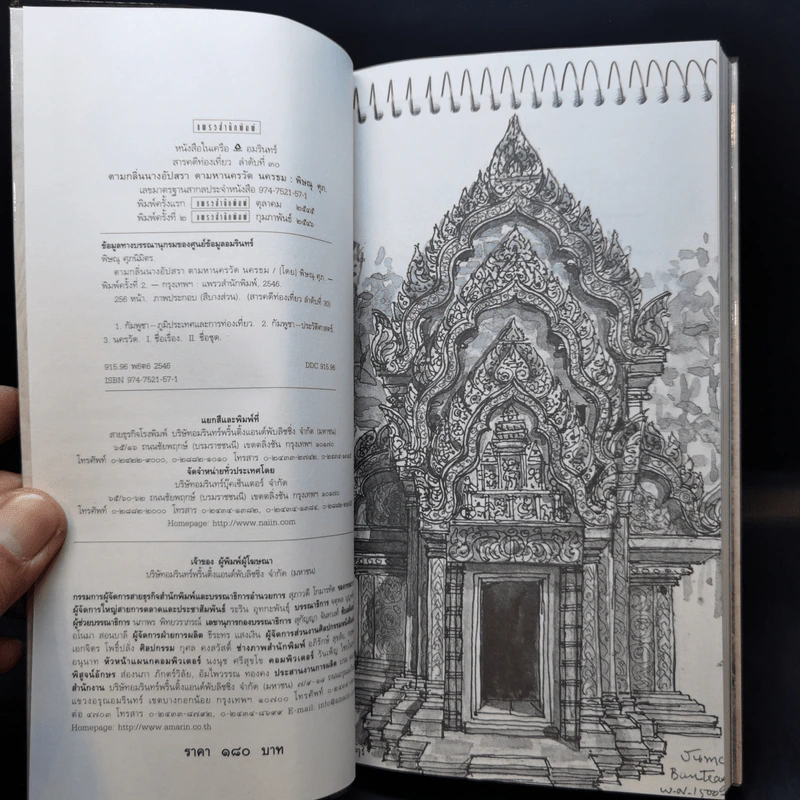 แพรวสำนักพิมพ์
หนังสือในเครือ อมรินทร์
สารคดีท่องเที่ยว ลำดับที่ ๓๐
ตามกลิ่นนางอัปสรา ตามหานครวัด นครธม : พิษณุ ศุภ.
เลขมาตรฐานสากลประจำหนังสือ 974-7521-57-1
พิมพ์ครั้งแรก แพรวสำนักพิมพ์ ตุลาคม ๒๕๔๕
พิมพ์ครั้งที่ ๒ แพรวสำนักพิมพ์ กุมภาพันธ์ ๒๕๔๖
ข้อมูลทางบรรณานุกรมของศูนย์ข้อมูลอมรินทร์
พิษณุ ศุภนิมิตร.
ตามกลิ่นนางอัปสรา ตามหานครวัด นครธม / (โดย) พิษณุ ศุภ. —
พิมพ์ครั้งที่ 2. — กรุงเทพฯ : แพรวสำนักพิมพ์, 2546.
256 หน้า. ภาพประกอบ (สีบางส่วน). (สารคดีท่องเที่ยว ลำดับที่ 30)
1. กัมพูชา—ภูมิประเทศและการท่องเที่ยว. 2. กัมพูชา—ประวัติศาสตร์.
3. นครวัด. I. ชื่อเรื่อง. II. ชื่อชุด.
915.96 พ562 2546 DDC 915.96
ISBN 974-7521-57-1
แยกสีและพิมพ์ที่
สายธุรกิจโรงพิมพ์ บริษัทอมรินทร์พริ้นติ้งแอนด์พับลิชชิ่ง จำกัด (มหาชน)
๖๕/๑๖ ถนนชัยพฤกษ์ (บรมราชชนนี) เขตตลิ่งชัน กรุงเทพฯ ๑๐๑๗๐
โทรศัพท์ ๐-๒๔๒๒-๙๐๐๐, ๐-๒๘๘๒-๑๐๑๐ โทรสาร ๐-๒๔๓๓-๒๗๔๒,
จัดจำหน่ายทั่วประเทศโดย
บริษัทอมรินทร์บุ๊คเซ็นเตอร์ จำกัด
๖๕/๖๐-๖๒ ถนนชัยพฤกษ์ (บรมราชชนนี) เขตตลิ่งชัน กรุงเทพฯ ๑๐๑๗๐
โทรศัพท์ ๐-๒๘๘๒-๒๐๐๐ โทรสาร ๐-๒๔๓๔-๑๓๘๒,
Homepage: http://www.naiin.com
เจ้าของ ผู้พิมพ์ผู้โฆษณา
บริษัทอมรินทร์พริ้นติ้งแอนด์พับลิชชิ่ง จำกัด (มหาชน)
กรรมการผู้จัดการสายธุรกิจสำนักพิมพ์และบรรณาธิการอำนวยการ สุภาวดี โกมารทัต
ผู้จัดการใหญ่สายการตลาดและประชาสัมพันธ์ ระริน อุทกะพันธุ์ บรรณาธิการ
ผู้ช่วยบรรณาธิการ นภาพร พิทยวราภรณ์ เลขานุการกองบรรณาธิการ
สอนบาลี ผู้จัดการฝ่ายการผลิต ธีระพร แสงเงิน ผู้จัดการส่วนงานศิลปกรรม
เอกจิตร โพธิ์ปลั่ง ศิลปกรรม กุศล คงสวัสดิ์ ช่างภาพสำนักพิมพ์
อนุนาท หัวหน้าแผนกคอมพิวเตอร์ นงนุช ศรีสุขใข คอมพิวเตอร์ วันเพ็ญ
พิสูจน์อักษร ส่องนภา ภักตร์วิลัย, อิมไพวรรณ ทองคง ประสานงานการผลิต
สำนักงาน บริษัทอมรินทร์พริ้นติ้งแอนด์พับลิชชิ่ง จำกัด (มหาชน)
แขวงอรุณอมรินทร์ เขตบางกอกน้อย กรุงเทพฯ ๑๐๗๐๐ โทรศัพท์
ต่อ ๔๗๐๓ โทรสาร ๐-๒๔๓๔-๘๗๙๒, ๐-๒๔๓๔-๘๖๙๙ E-mail:
Homepage: http://www.amarin.co.th
ราคา ๑๘๐ บาท